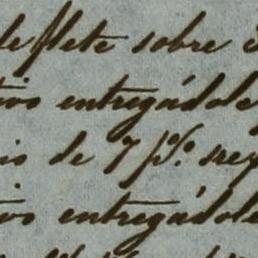 de flete sobre
tivo entregádole
is de 7 p.º
tivo entregádole